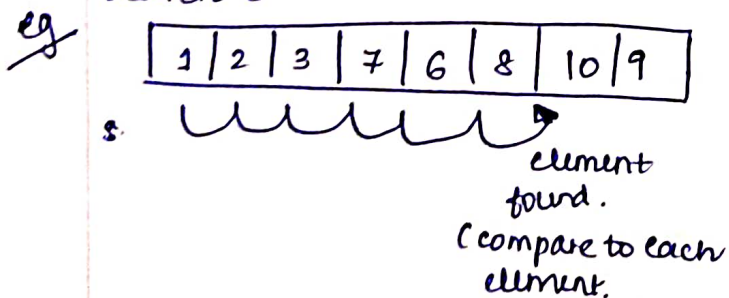 eg
1 | 2 | 3 | 7 | 6 | 8 | 10 | 9
s.
element
found.
(compare to each
element.